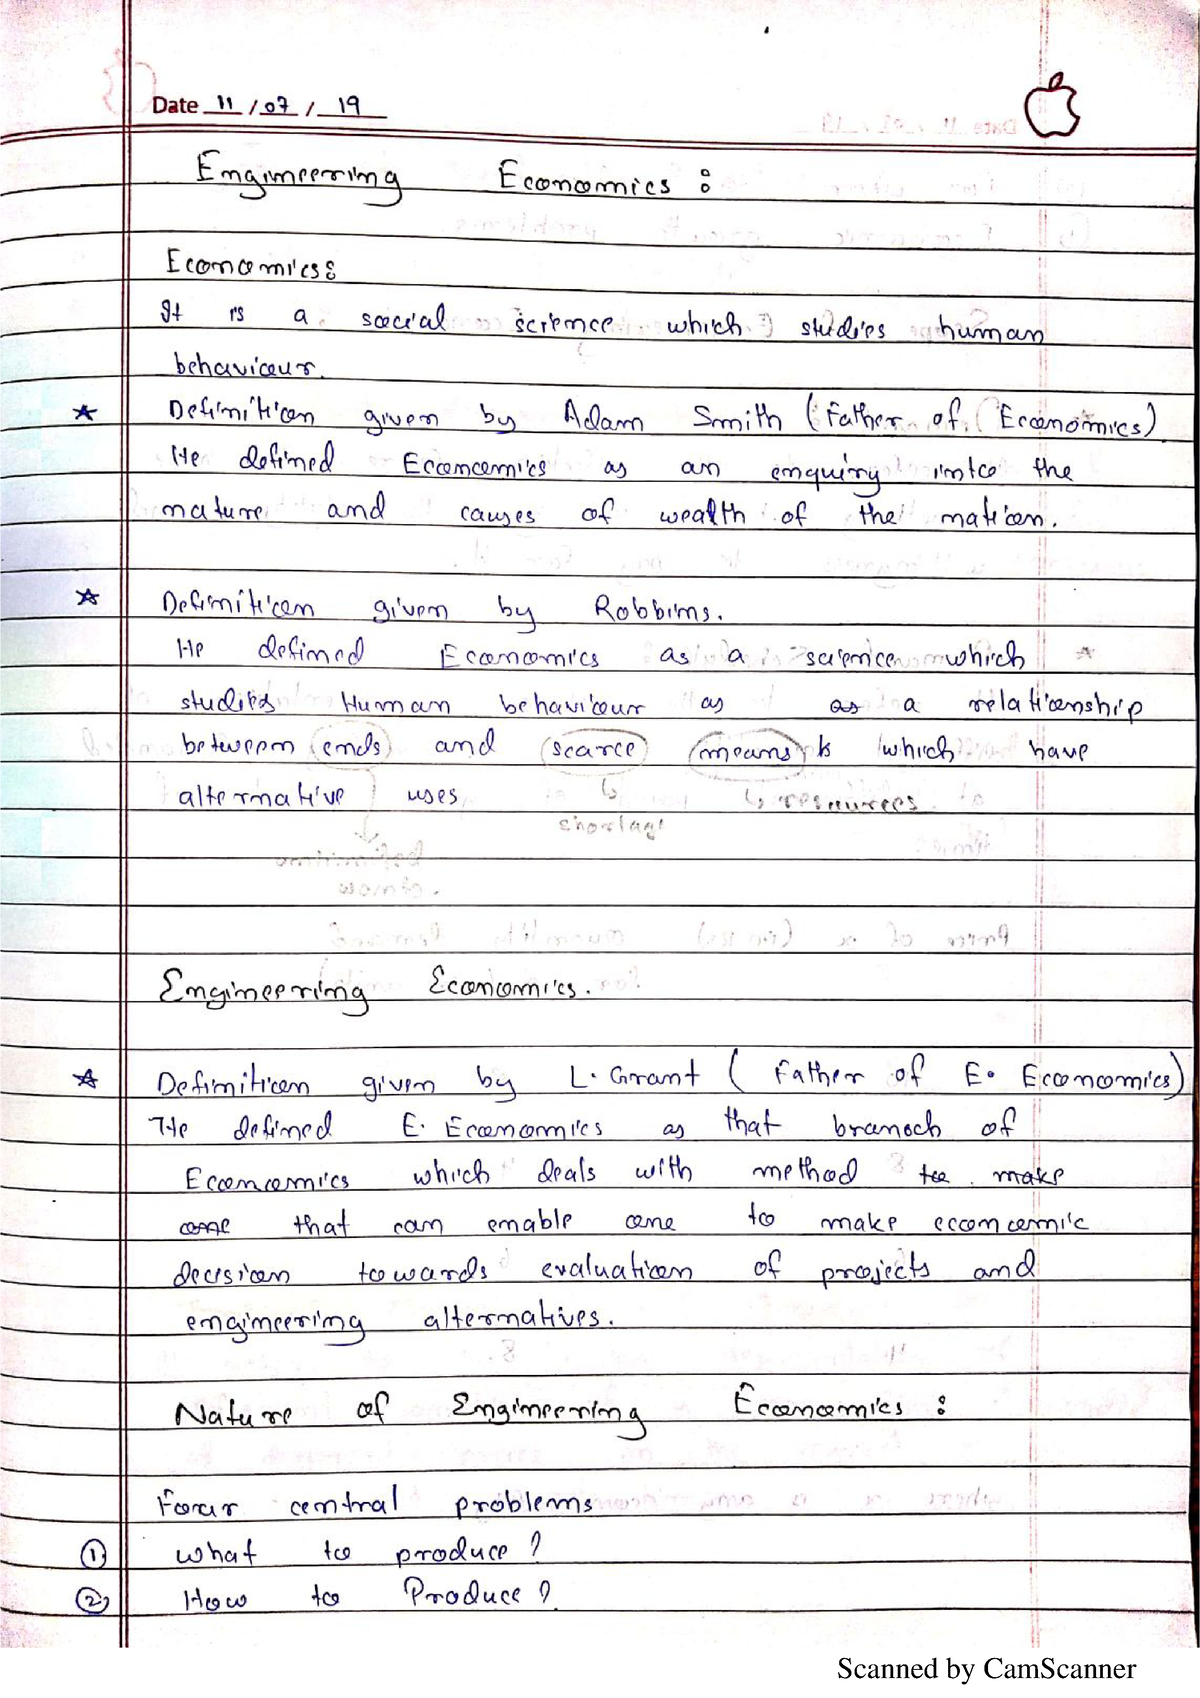 Date 11 / 07 / 19
Engineering Economics :
Economics:
It is a social science which studies human
behaviour.
☆ Definition given by Adam Smith (Father of Economics)
He defined Economics as an enquiry into the
nature and causes of wealth of the nation.
☆ Definition given by Robbins.
He defined Economics as a science which
studies Human behaviour as as a relationship
between ends and scarce means which have
alternative uses
↳ shortage
↳ resources
Engineering Economics.
☆ Definition given by L. Grant ( Father of E. Economics)
He defined E. Economics as that branch of
Economics which deals with method to make
one that can enable one to make economic
decision towards evaluation of projects and
engineering alternatives.
Nature of Engineering Economics :
Four central problems
① What to produce ?
② How to Produce ?
Scanned by CamScanner